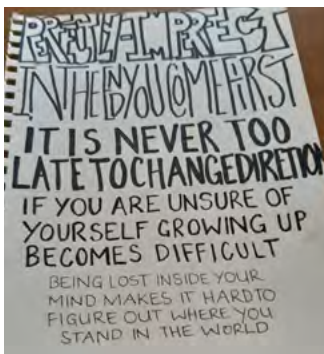 PERFECTLY-IMPERFECT
IN THE END YOU COME FIRST
IT IS NEVER TOO
LATE TO CHANGE DIRETION
IF YOU ARE UNSURE OF
YOURSELF GROWING UP
BECOMES DIFFICULT
BEING LOST INSIDE YOUR
MIND MAKES IT HARD TO
FIGURE OUT WHERE YOU
STAND IN THE WORLD